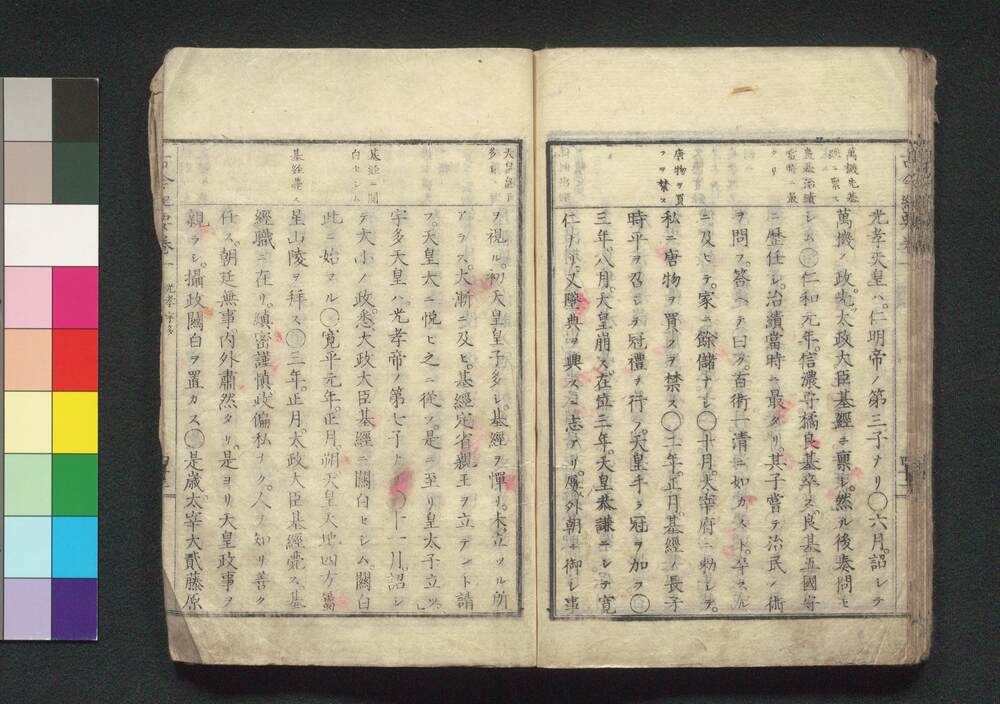 光孝天皇ハ。仁明帝ノ第三子ナリ。〇六月。詔シテ
萬機ノ政。先太政大臣基經ニ稟シ。然ル後奏聞セ
シム〇仁和元年。信濃守橘良基卒ス。良基五國守
ニ歴任シ。治績當時ニ最タリ。其子嘗テ治民ノ術
ヲ問フ。答ヘテ曰ク。百術一清ニ如カスト。卒スル
ニ及ヒテ。家ニ餘儲ナシ〇十月。太宰府ニ勅シテ。
私ニ唐物ヲ買フヲ禁ス〇二年。正月。基經ノ長子
時平ヲ召シテ冠禮ヲ行フ。天皇手ラ冠ヲ加フ〇
三年。八月。天皇崩ス。在位三年。天皇恭謙ニシテ寛
仁ナリ。又舊典ヲ興スニ志アリ。屢外朝ニ御シ事
ヲ視ル。初天皇皇子多シ。基經ヲ憚リ。未立ツル所
アラス。大漸ニ及ヒ。基經定省親王ヲ立テント請
フ。天皇大ニ悦ヒ之ニ從フ。是ニ至リ皇太子立ツ。
宇多天皇ハ。光孝帝ノ第七子ナリ〇十一月。詔シ
テ大小ノ政。悉太政大臣基經ニ關白セシム。關白
此ニ始マル〇寛平元年。正月。朔。天皇天地四方屬
星山陵ヲ拜ス〇三年。正月。太政大臣基經薨ス。基
經職ニ在リ。縝密謹慎政偏私ナク。人ヲ知リ善ク
任ス。朝廷無事内外肅然タリ。是ヨリ天皇政事ヲ
親ラシ。攝政關白ヲ置カス〇是歳。太宰大貳藤原
萬機先基
唐物ヲ買
フヲ禁ス
基經ニ關
白セシム
基經薨ス
光孝 宇多